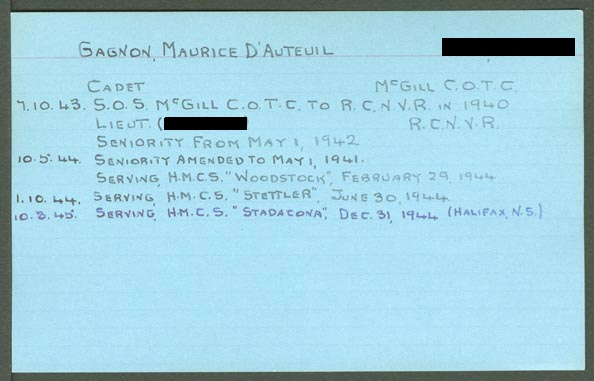 GAGNON, MAURICE D'AUTEUIL
CADET McGILL C.O.T.C.
7.10.43. S.O.S. McGILL C.O.T.C. TO R.C.N.V.R. IN 1940
LIEUT. ( R.C.N.V.R.
SENIORITY FROM MAY 1, 1942
10.5.44. SENIORITY AMENDED TO MAY 1, 1941.
SERVING, H.M.C.S. "WOODSTOCK", FEBRUARY 29, 1944
1.10.44. SERVING, H.M.C.S. "STETTLER", JUNE 30, 1944
10.3.45. SERVING, H.M.C.S. "STADACONA", DEC. 31, 1944 (HALIFAX, N.S.)